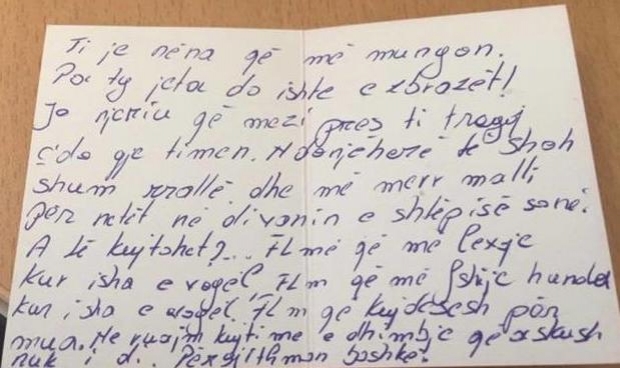 Ti je nëna që më mungon.
Pa ty jeta do ishte e zbrazët!
Je njeriu që mezi pres ti tregoj
çdo gje timen. Ndonjëherë të shoh
shum rrallë dhe më merr malli
për netët në divanin e shtëpisë sonë.
A të kujtohet?... FLm që me lexje
kur isha e vogël, FLm që më fshije hundët
kur isha e vogël. FLm qe kujdesesh për
mua. Ne ruajm kujtime e dhimbje që askush
nuk i di.. Përgjithmon bashkë!